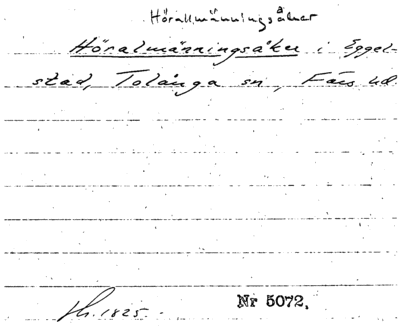 Hörallmänningsåker
Höralmänningsåker i Eggel-
stad, Tolånga sn, Färs hd.
1825.
Nr 5072.